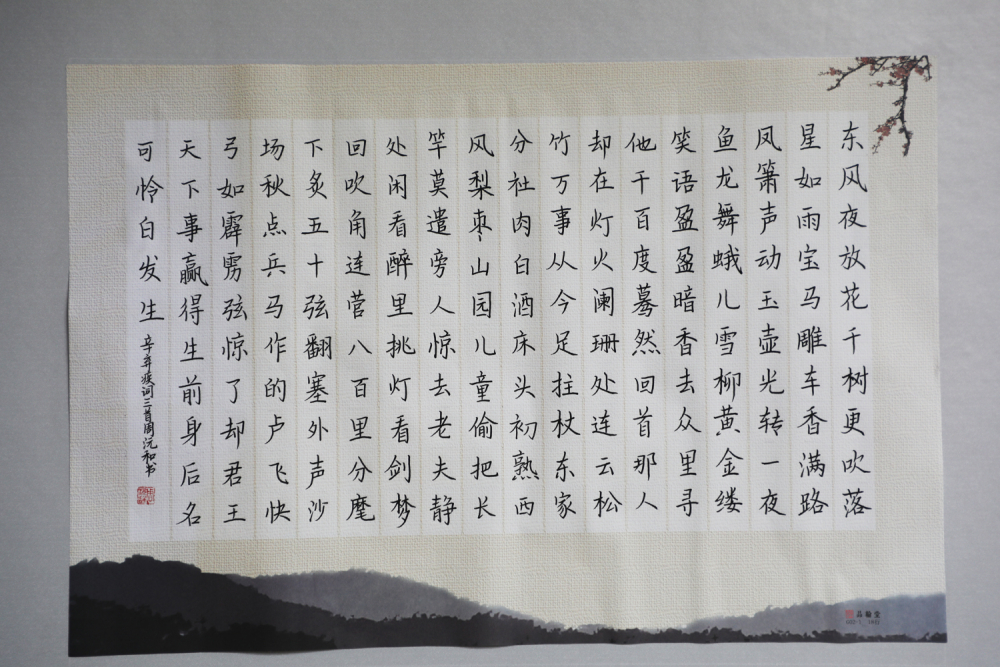 东风夜放花千树更吹落
星如雨宝马雕车香满路
凤箫声动玉壶光转一夜
鱼龙舞蛾儿雪柳黄金缕
笑语盈盈暗香去众里寻
他千百度蓦然回首那人
却在灯火澜珊处连云松
竹万事从今足拄杖东家
分社肉白酒床头初熟西
风梨枣山园儿童偷把长
竿莫遣旁人惊去老夫静
处闲看醉里挑灯看剑梦
回吹角连营八百里分麾
下炙五十弦翻塞外声沙
场秋点兵马作的卢飞快
弓如霹雳弦惊了却君王
天下事赢得生前身后名
可怜白发生
辛弃疾词三首周沅和书
品翰堂